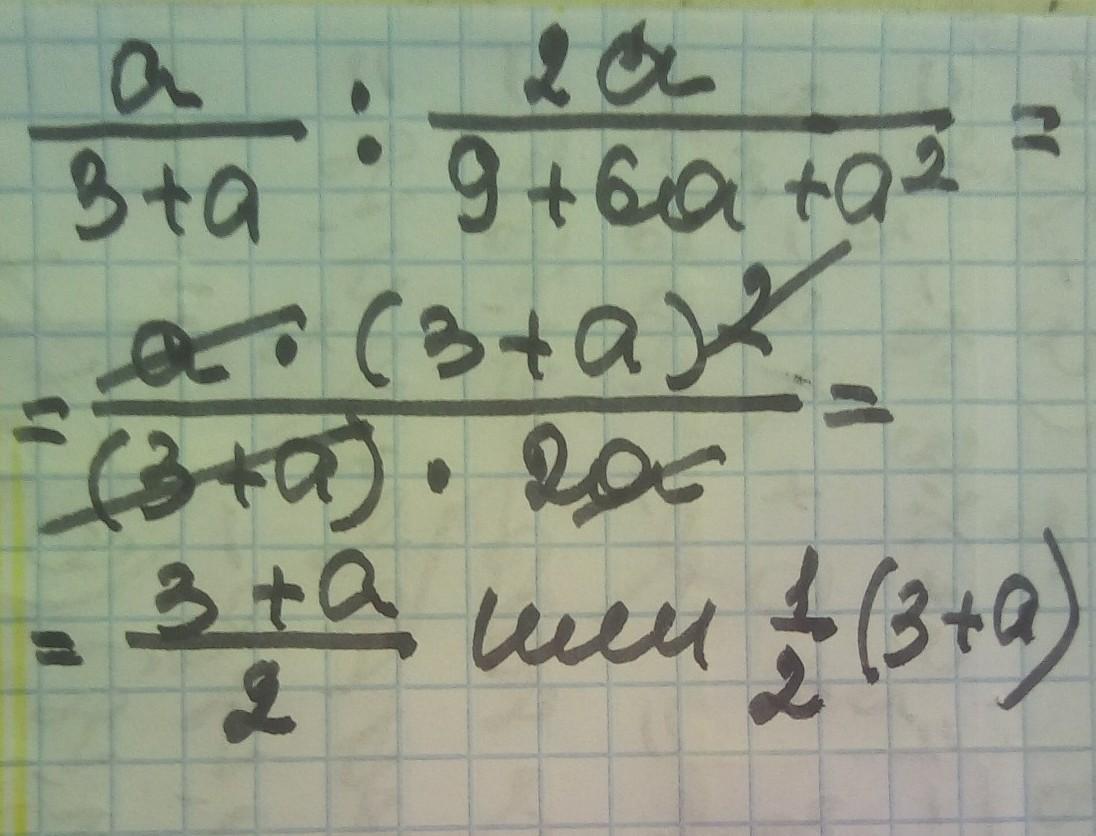 a/(3+a) : 2a/(9+6a+a²) =
= a·(3+a)²/((3+a)·2a) =
= (3+a)/2 или 1/2(3+a)